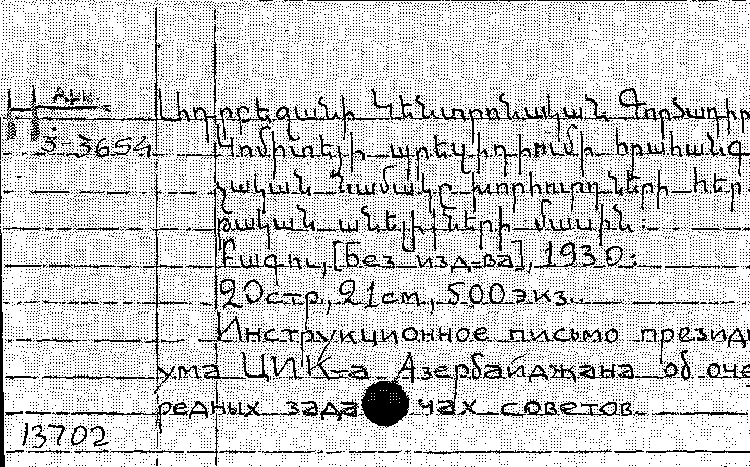 3654
Ադրբեջանի Կենտրոնական Գործադիր
Կոմիտեյի պրեզիդիումի հրահանգ
չական նամակը խորհուրդների հեր
թական անելիքների մասին:
Բագու, [без изд-ва], 1930:
20стр., 21см., 500экз.
Инструкционное письмо президи
ума ЦИК-а Азербайджана об оче
редных задачах советов.
13702